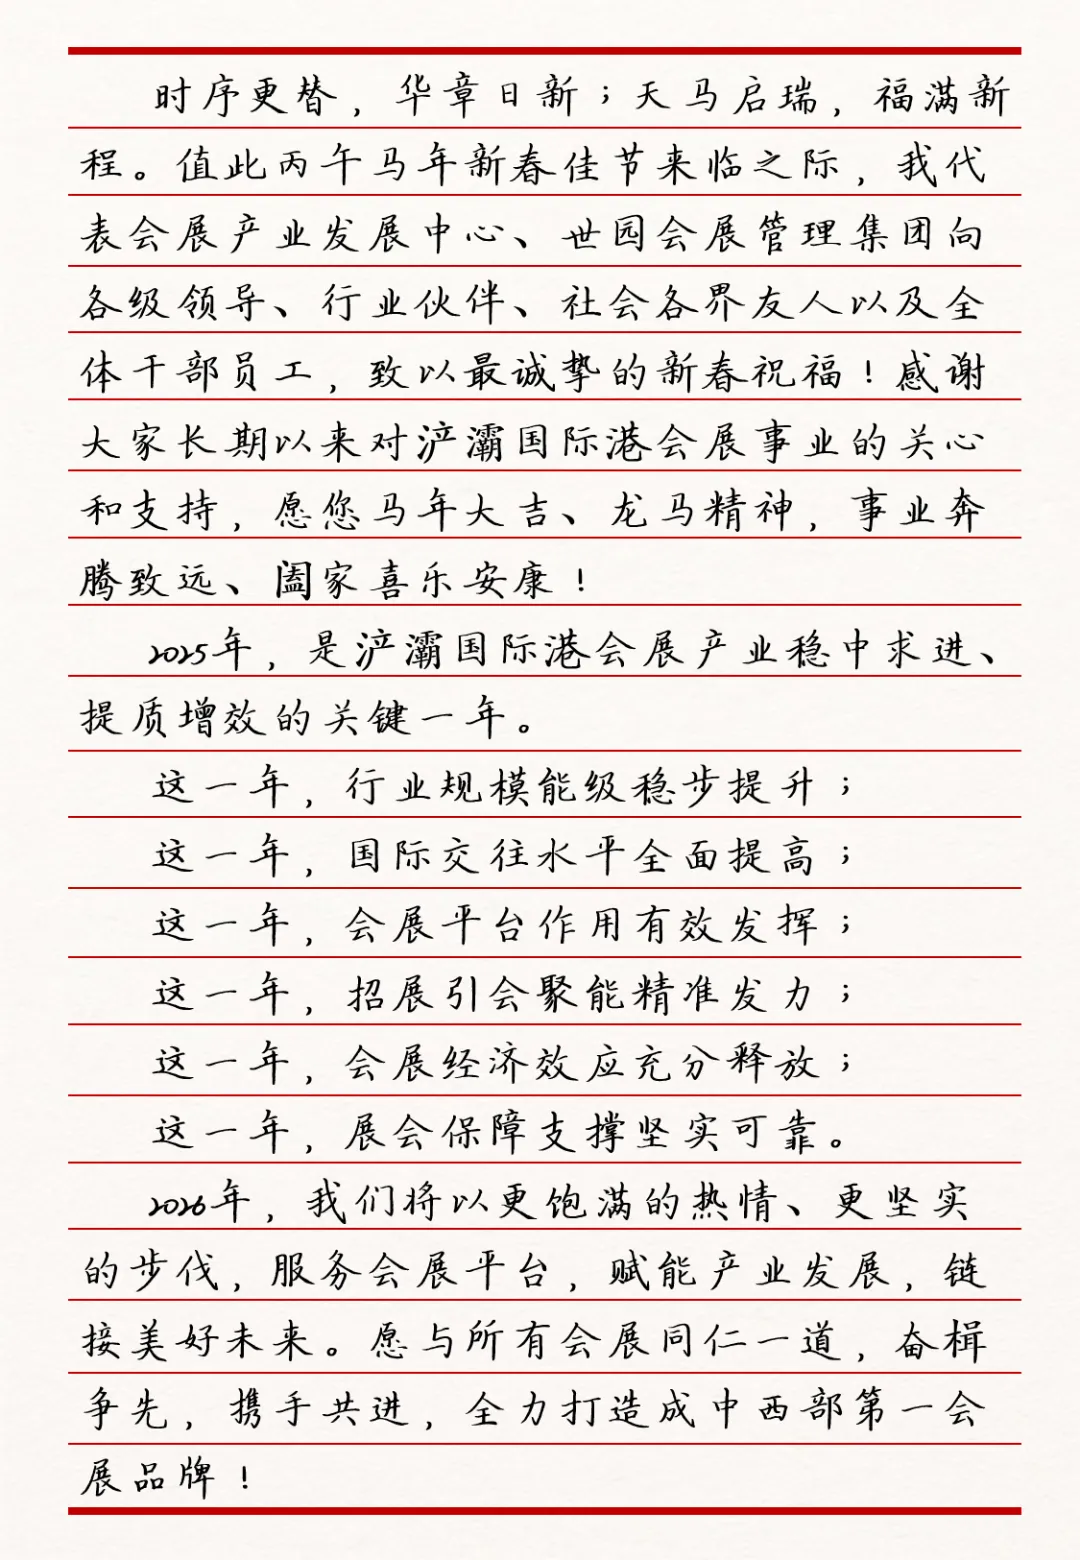 时序更替，华章日新；天马启瑞，福满新
程。值此丙午马年新春佳节来临之际，我代
表会展产业发展中心、世园会展管理集团向
各级领导、行业伙伴、社会各界友人以及全
体干部员工，致以最诚挚的新春祝福！感谢
大家长期以来对浐灞国际港会展事业的关心
和支持，愿您马年大吉、龙马精神，事业奔
腾致远、阖家喜乐安康！
2025年，是浐灞国际港会展产业稳中求进、
提质增效的关键一年。
这一年，行业规模能级稳步提升；
这一年，国际交往水平全面提高；
这一年，会展平台作用有效发挥；
这一年，招展引会聚能精准发力；
这一年，会展经济效应充分释放；
这一年，展会保障支撑坚实可靠。
2026年，我们将以更饱满的热情、更坚实
的步伐，服务会展平台，赋能产业发展，链
接美好未来。愿与所有会展同仁一道，奋楫
争先，携手共进，全力打造成中西部第一会
展品牌！